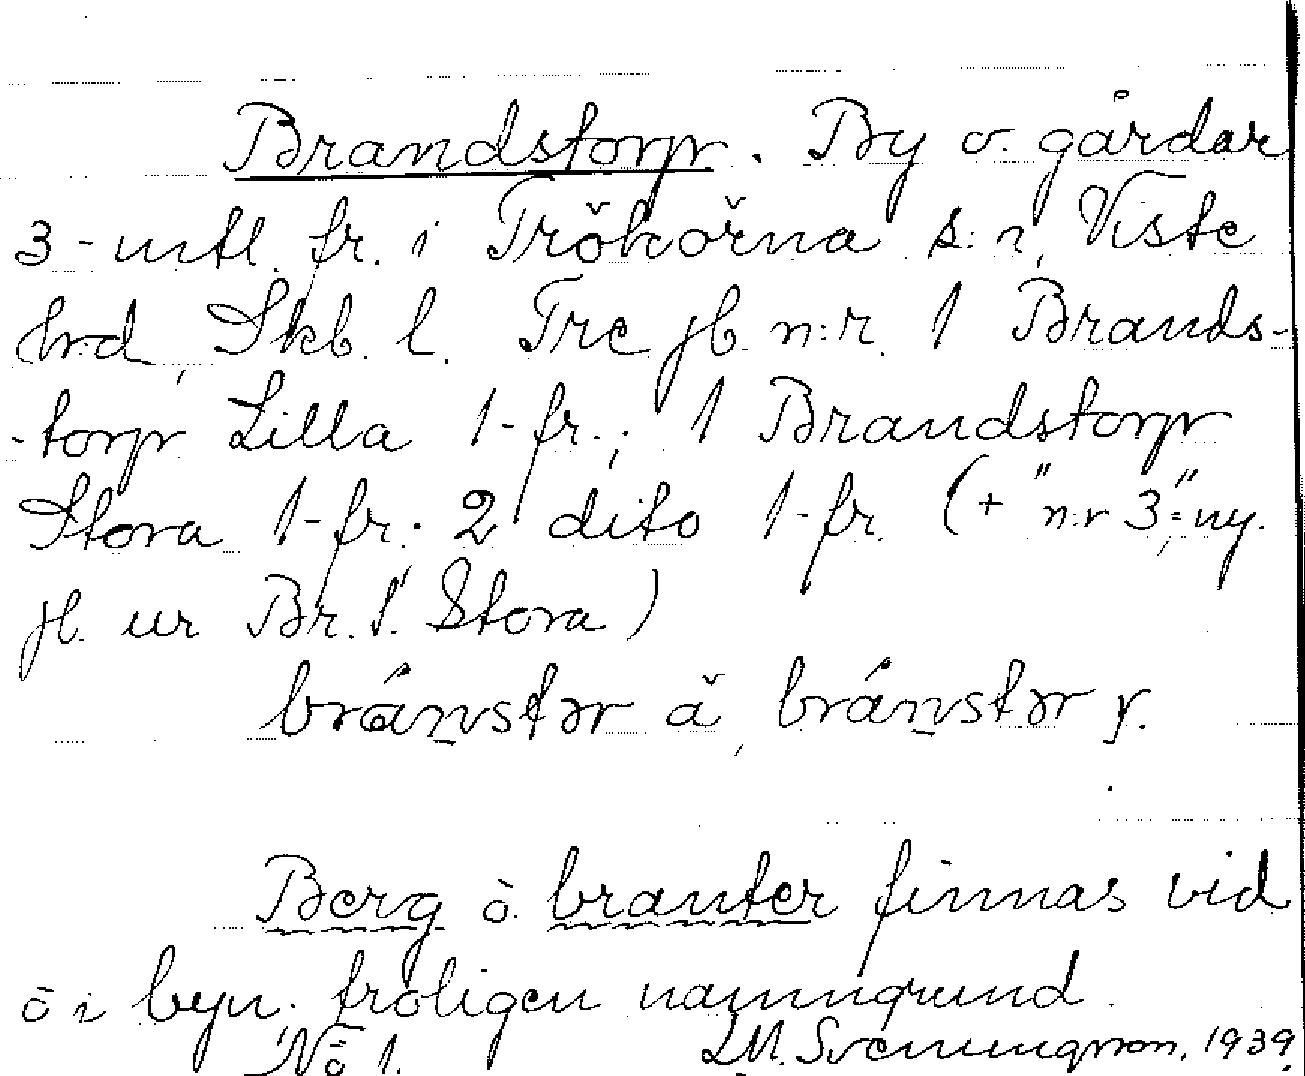 Brandstorp. By o. gårdar
3-mtl. fr. i Trökörna s:n, Viste
hrd, Skb. l. Tre jb. n:r. 1 Brands-
-torp Lilla 1-fr.; 1 Brandstorp
Stora 1-fr; 2 dito 1-fr. (+ "n:r 3", = ny.
jl. ur Br. 1. Stora)
bránstər å, bránstər y.
Berg ö. branter finnas vid
ö i byn. troligen namngrund.
No 1. LM. Svenungsson, 1939.